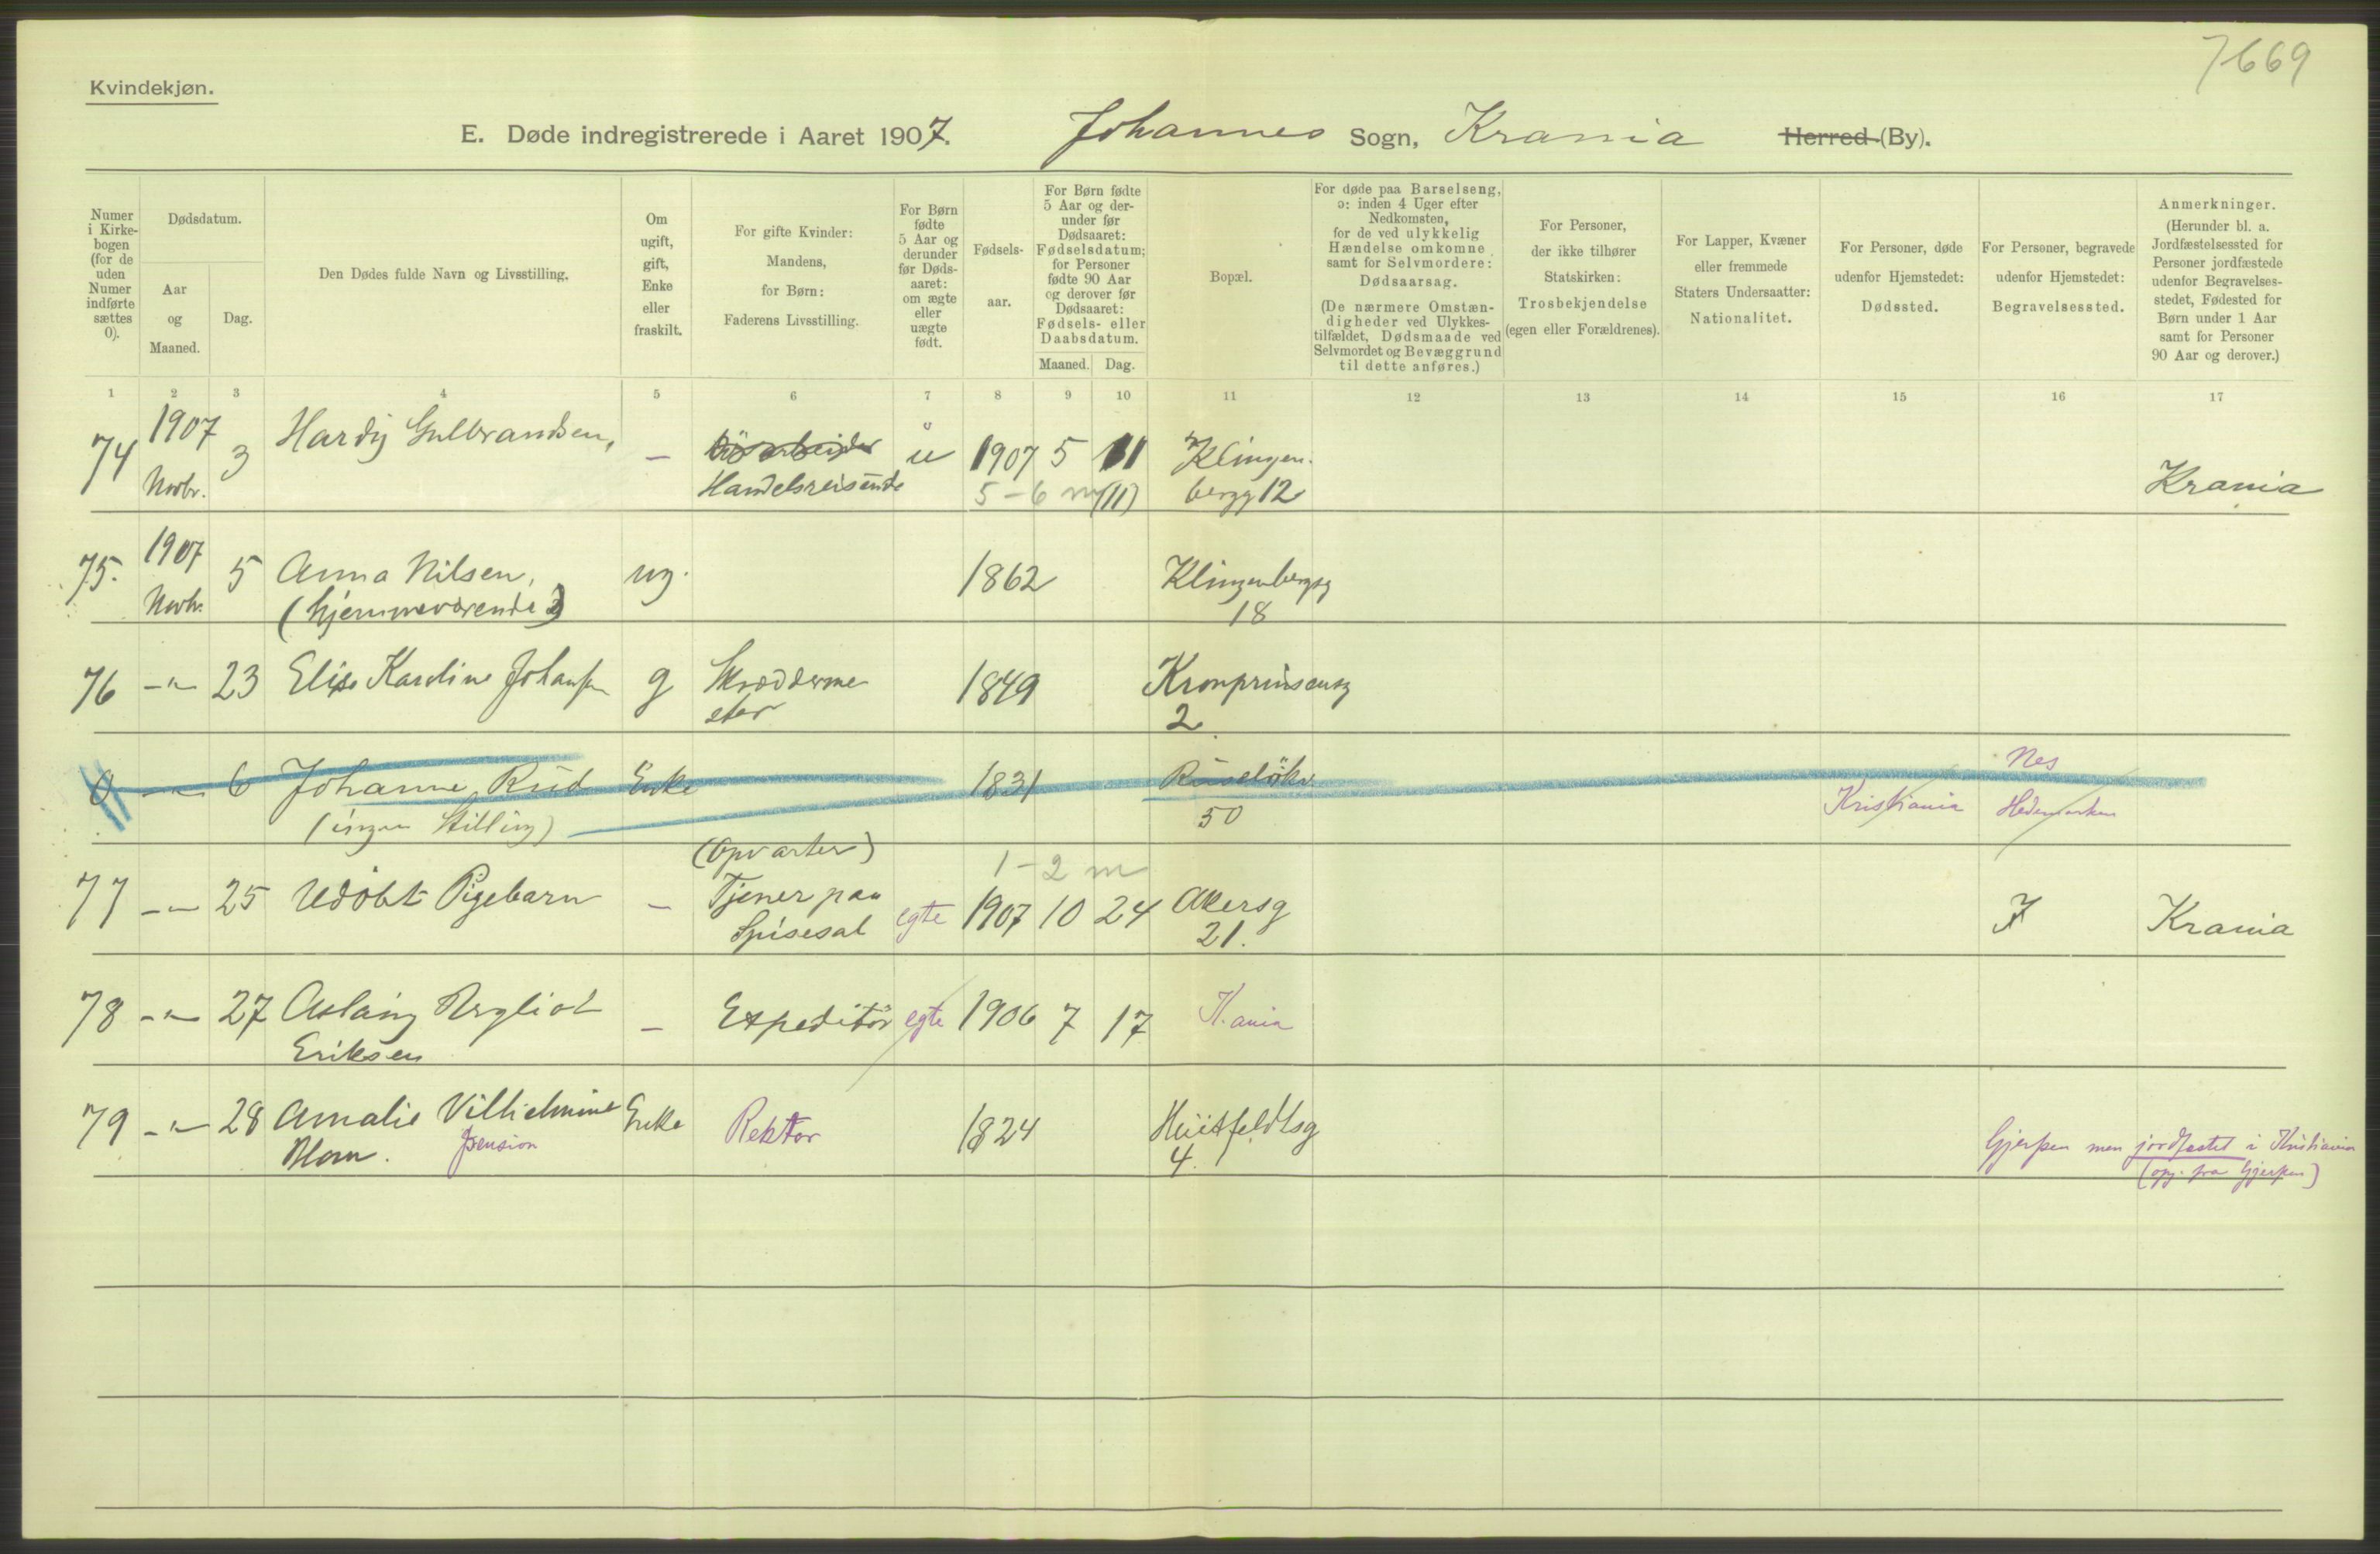 7669
Kvindekjøn.
E. Døde indregistrerede i Aaret 1907. Johannes Sogn, Krania Herred (By).
Numer i Kirke-bogen (for de uden Numer indførte sættes 0).
Dødsdatum.
Aar og Maaned.
Dag.
Den Dødes fulde Navn og Livsstilling.
Om ugift, gift, Enke eller fraskilt.
For gifte Kvinder: Mandens, for Børn: Faderens Livsstilling.
For Børn fødte 5 Aar og derunder før Døds-aaret: om ægte eller uægte født.
Fødsels-aar.
For Børn fødte 5 Aar og der-under før Dødsaaret: Fødselsdatum; for Personer fødte 90 Aar og derover før Dødsaaret: Fødsels- eller Daabsdatum.
Maaned. Dag.
Bopæl.
For døde paa Barselseng, ɔ: inden 4 Uger efter Nedkomsten, for de ved ulykkelig Hændelse omkomne samt for Selvmordere: Dødsaarsag. (De nærmere Omstæn-digheder ved Ulykkes-tilfældet, Dødsmaade ved Selvmordet og Bevæggrund til dette anføres.)
For Personer, der ikke tilhører Statskirken: Trosbekjendelse (egen eller Forældrenes).
For Lapper, Kvæner eller fremmede Staters Undersaatter: Nationalitet.
For Personer, døde udenfor Hjemstedet: Dødssted.
For Personer, begravede udenfor Hjemstedet: Begravelsessted.
Anmerkninger. (Herunder bl. a. Jordfæstelsessted for Personer jordfæstede udenfor Begravelses-stedet, Fødested for Børn under 1 Aar samt for Personer 90 Aar og derover.)
1 2 3 4 5 6 7 8 9 10 11 12 13 14 15 16 17
74 1907 3 Hardy Gulbrandsen, — u 1907 5 11 Klingen-
Novbr. Handelsreisende 5-6 m (11) bergg 12 Krania
75. 1907 5 Anna Nilsen, ug. 1862 Klingenbergsg
Novbr. (hjemmeværende) 18
76 -"- 23 Elise Karoline Johansen g Skrædderme 1849 Kronprinsensg
ster 2.
Nes
0 -"- 6 Johanne Rud Enke 1831 Ruseløkv.
(ingen Stilling) 50 Kristiania Hedemarken
(Opvarter) 1-2 m
77 -"- 25 Udøbt Pigebarn — Tjener paa egte 1907 10 24 Akersg
Spisesal 21. F Krania
78 -"- 27 Aslaug Bergliot — Expeditør egte 1906 7 17 K.ania
Eriksen
79 -"- 28 Amalie Vilhelmine Enke Rektor 1824 Huitfeldtsg
pension 4. Gjerpen men jordfæstet i Kristiania
(opg. fra Gjerpen)